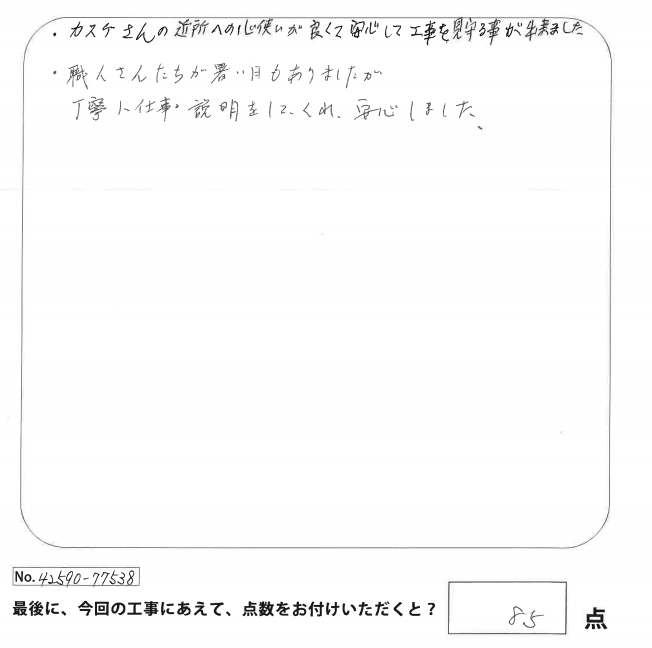 ・カスケさんの近所への心使いが良くて安心して工事を見守る事が出来ました
・職人さんたちが暑い日もありましたが
丁寧に仕事・説明をしてくれ、安心しました、
No. 42590-77538
最後に、今回の工事にあえて、点数をお付けいただくと？ 85 点